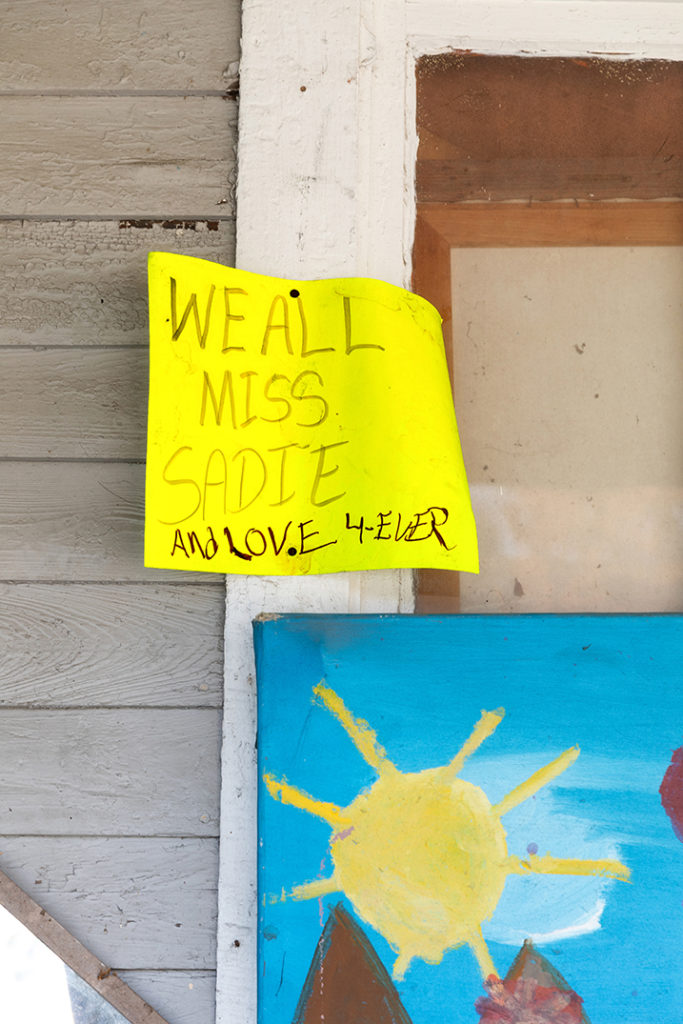 WE ALL
MISS
SADIE
ANd LOVE 4-EVER